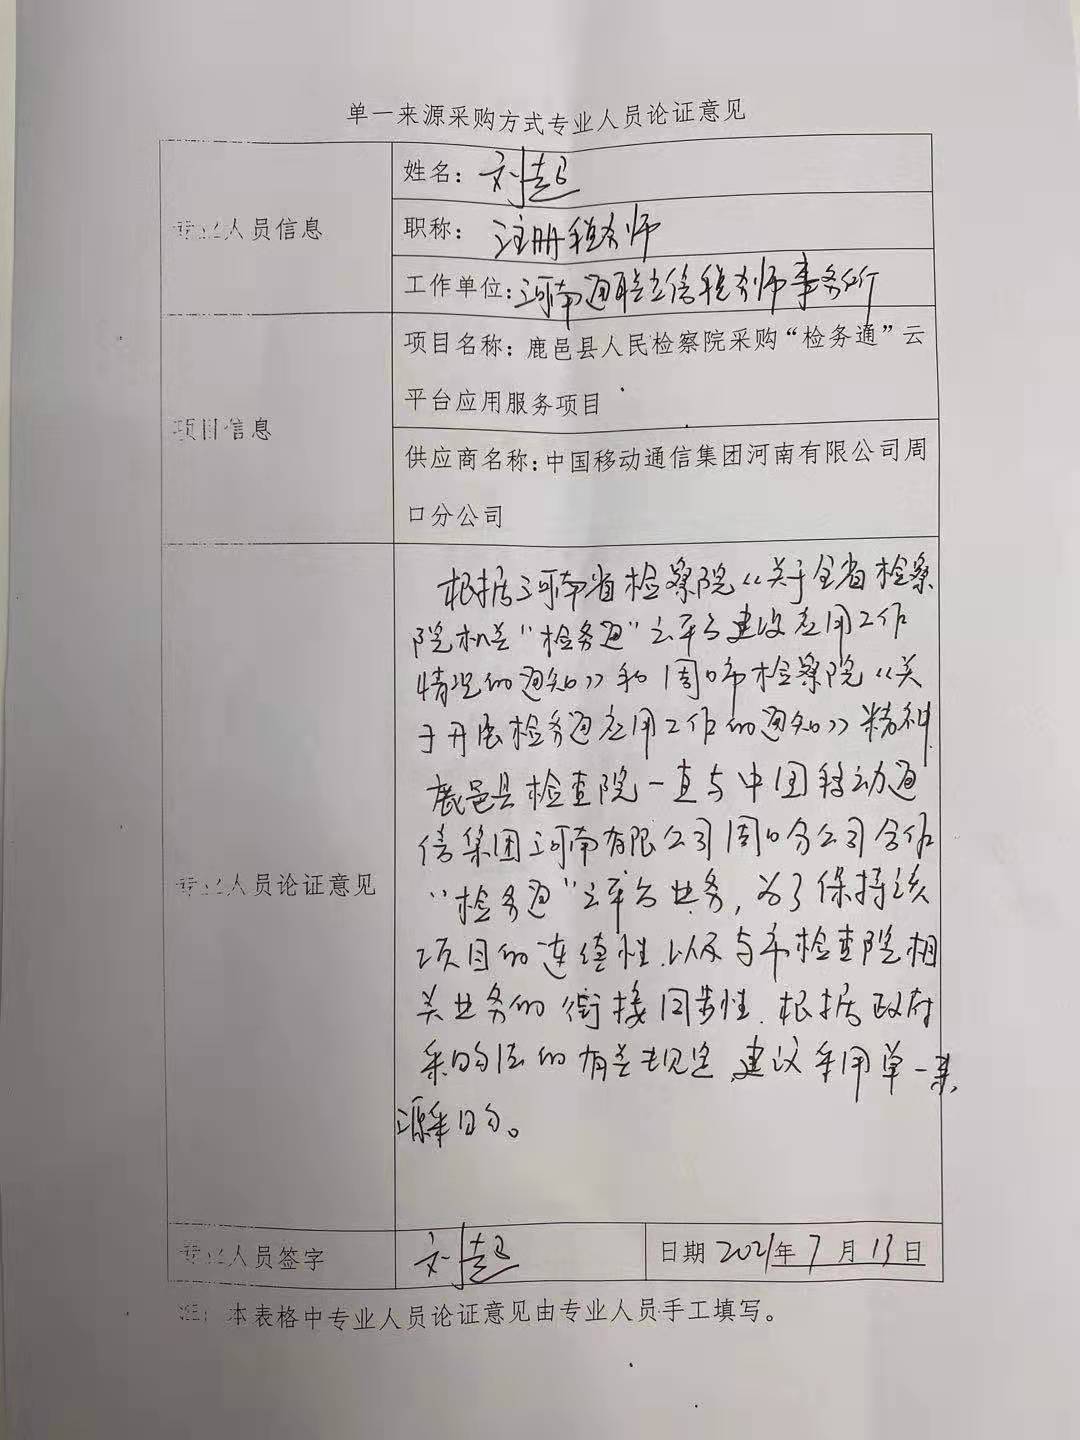 单一来源采购方式专业人员论证意见
专业人员信息
姓名：刘超
职称：注册税务师
工作单位：河南通联立信税务师事务所
项目信息
项目名称：鹿邑县人民检察院采购“检务通”云
平台应用服务项目
供应商名称：中国移动通信集团河南有限公司周
口分公司
专业人员论证意见
根据河南省检察院《关于全省检察
院机关“检务通”云平台建设应用工作
情况的通知》和周口市检察院《关
于开展检务通应用工作的通知》精神
鹿邑县检查院一直与中国移动通
信集团河南有限公司周口分公司合作
“检务通”云平台业务，为了保持该
项目的连续性、以及与市检查院相
关业务的衔接同步性、根据政府
采购法的有关规定，建议采用单一来
源采购。
专业人员签字
刘超
日期 2021年7月13日
注：本表格中专业人员论证意见由专业人员手工填写。